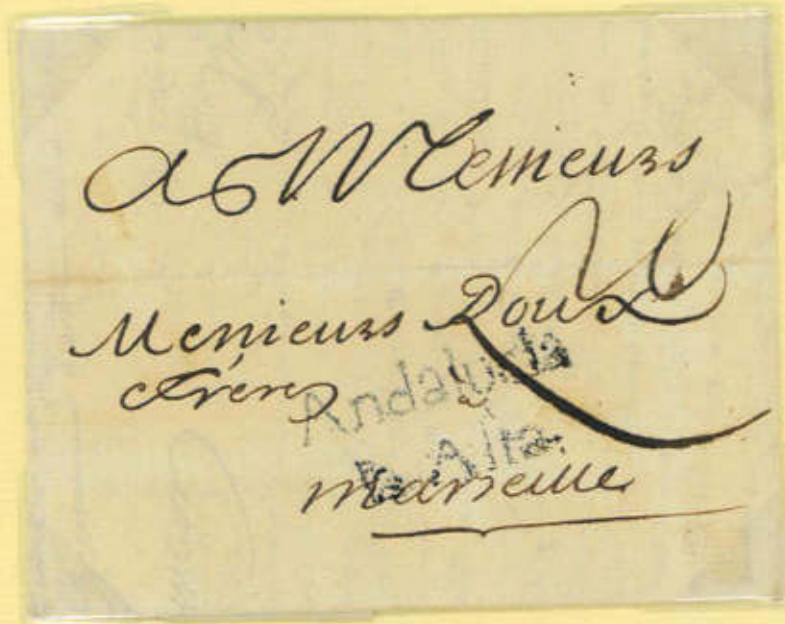 A Messieurs
Messieurs Roux
Frères
Andalucia
Alta
Marseille